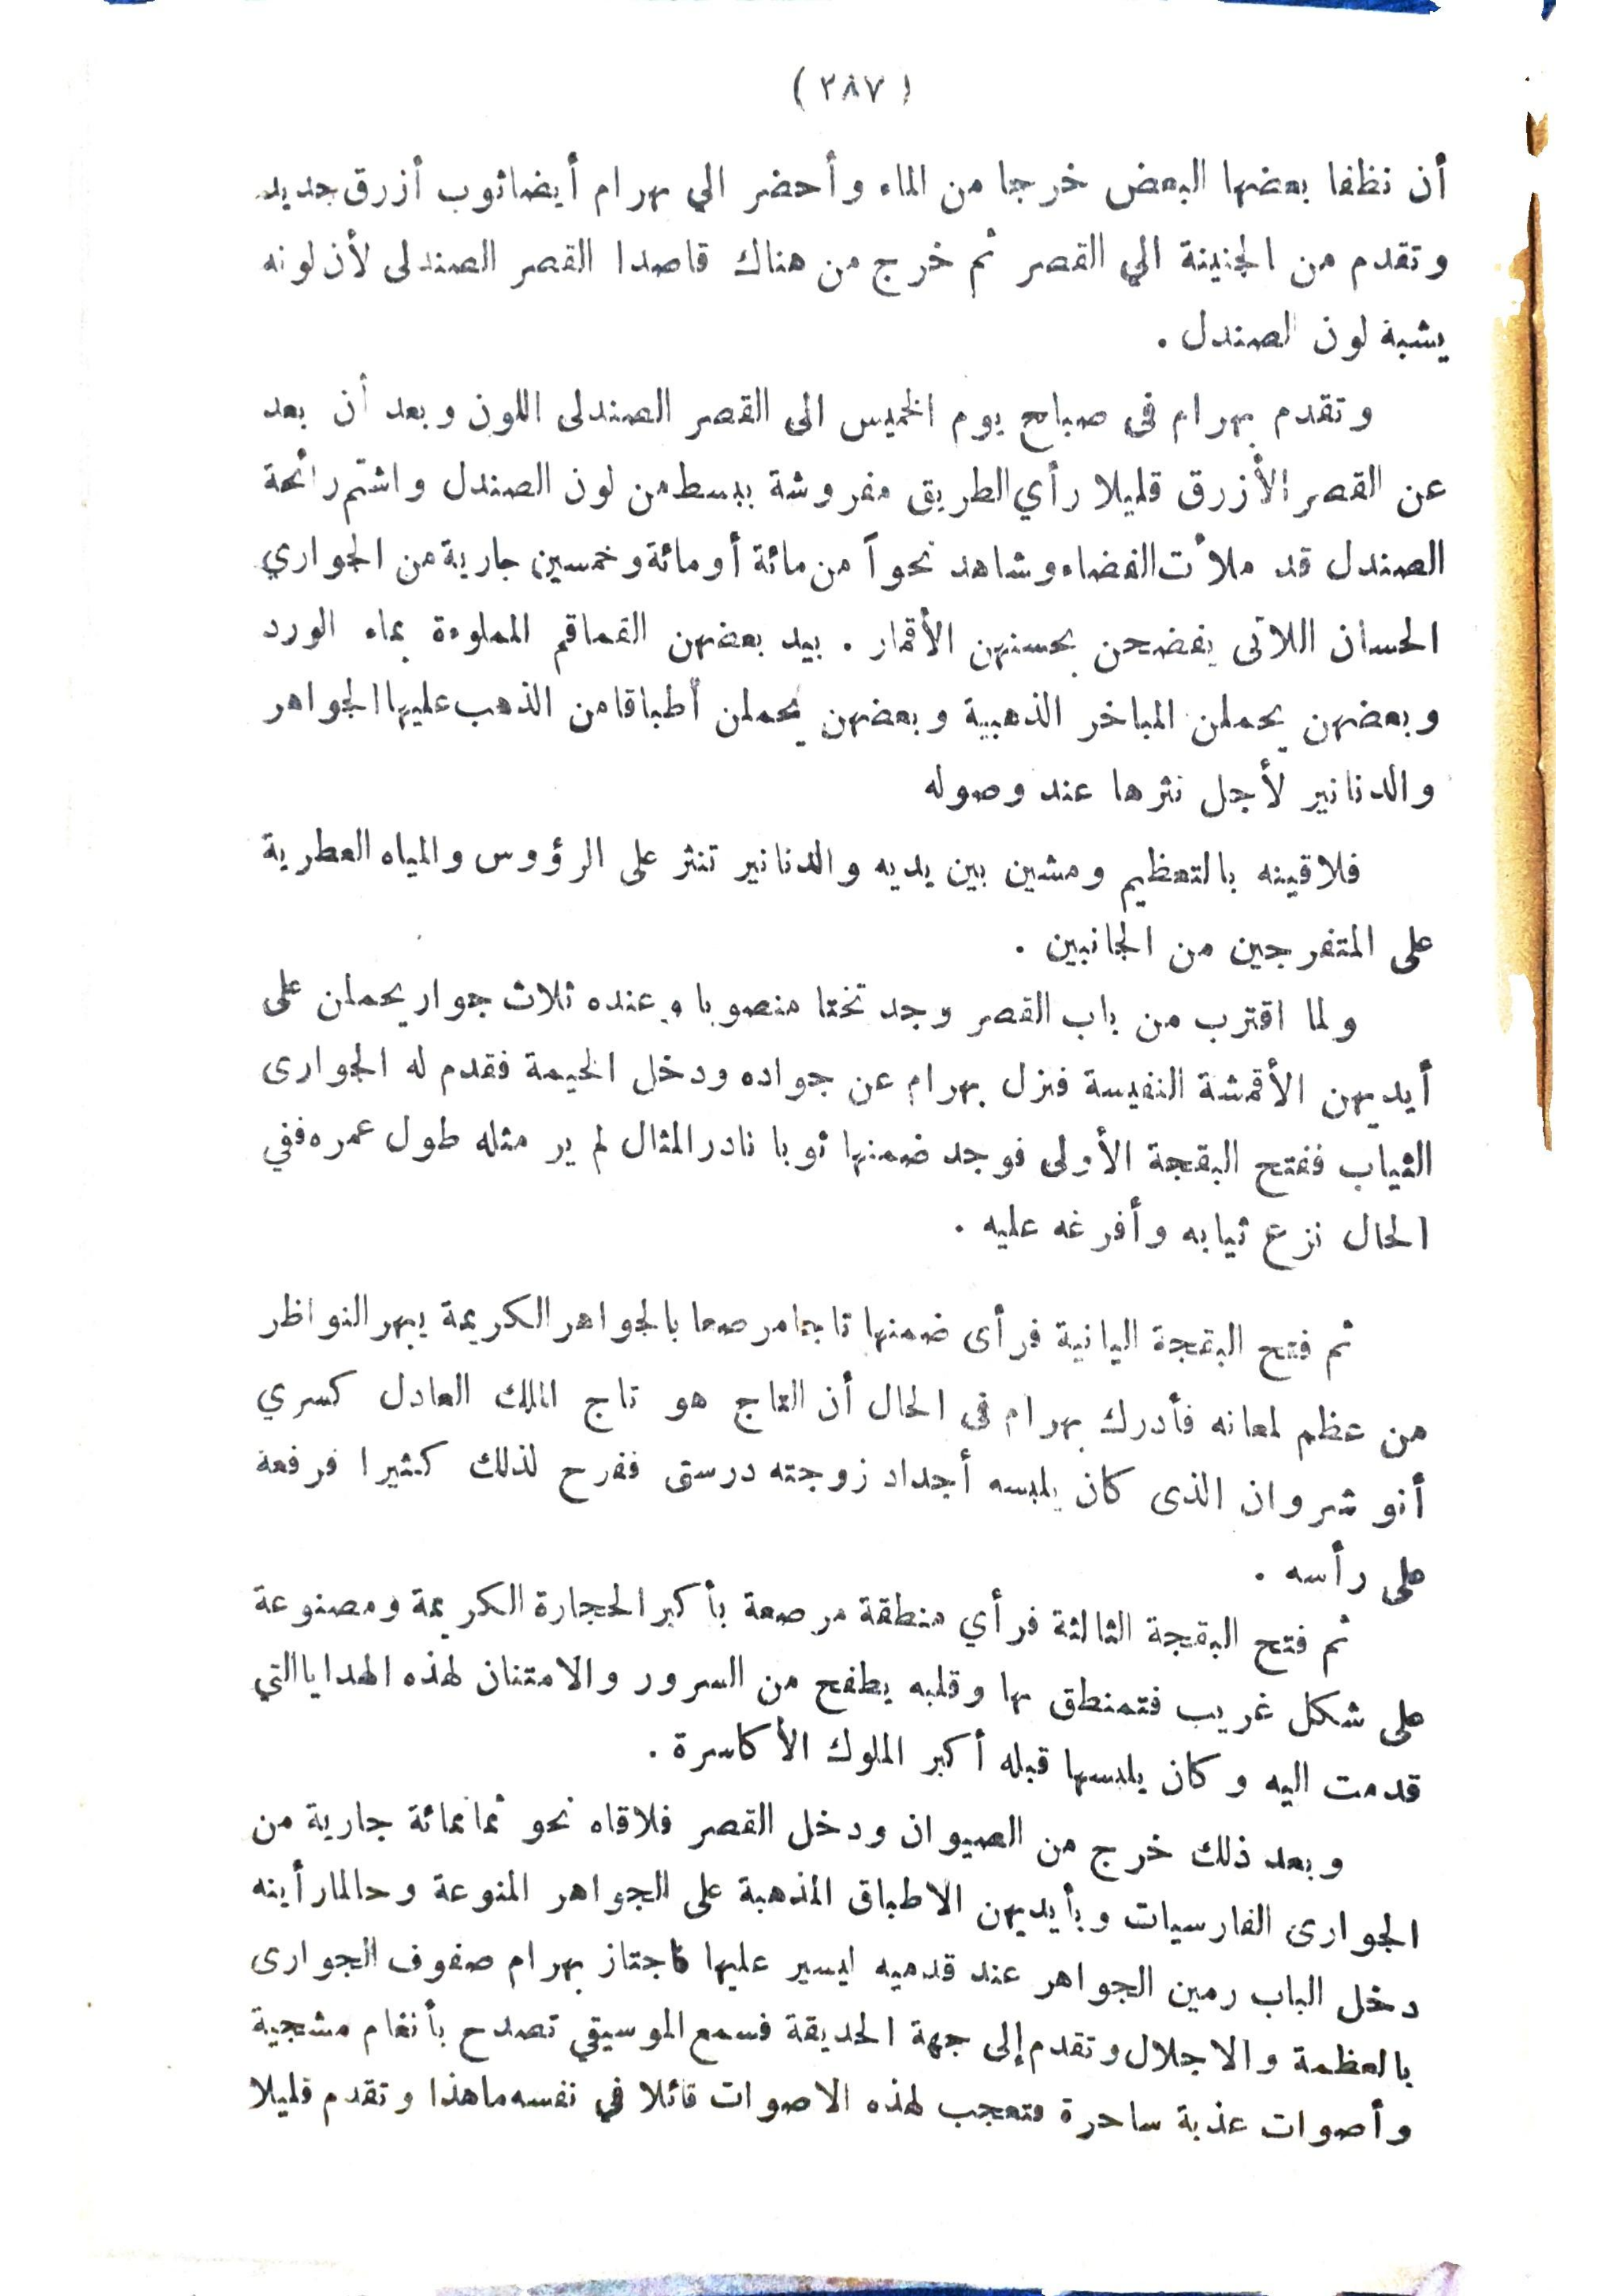 (٣٨٧)
أن نظفا بعضها البعض خرجا من الماء وأحضر الي بهرام أيضاثوب أزرق جديد
وتقدم من الجنينة الي القصر ثم خرج من هناك قاصدا القصر الصندلى لأن لونه
يشبة لون الصندل .
وتقدم بهرام فى صباح يوم الخميس الى القصر الصندلى اللون وبعد أن بعد
عن القصر الأزرق قليلا رأي الطريق مفروشة ببسط من لون الصندل واشتم رائحة
الصندل قد ملأت الفضاء وشاهد نحواً من مائة أومائة وخمسين جارية من الجواري
الحسان اللاتى يفضحن بحسنهن الأقمار . بيد بعضهن القماقم المملوءة بماء الورد
وبعضهن يحملن المباخر الذهبية وبعضهن يحملن أطباقا من الذهب عليها الجواهر
والدنانير لأجل نثرها عند وصوله
فلاقينه بالتعظيم ومشين بين يديه والدنانير تنثر على الرؤوس والمياه العطرية
على المتفرجين من الجانبين .
ولما اقترب من باب القصر وجد تختا منصوبا وعنده ثلاث جوار يحملن على
أيديهن الأقمشة النفيسة فنزل بهرام عن جواده ودخل الخيمة فقدم له الجوارى
الثياب ففتح البقجة الأولى فوجد ضمنها ثوبا نادر المثال لم ير مثله طول عمره ففي
الحال نزع ثيابه وأفرغه عليه .
ثم فتح البقجة اليانية فرأى ضمنها تاجا مرصعا بالجواهر الكريمة يبهر النواظر
من عظم لمعانه فأدرك بهرام فى الحال أن التاج هو تاج الملك العادل كسري
أنو شروان الذى كان يلبسه أجداد زوجته درستى ففرح لذلك كثيرا فرفعة
على رأسه .
ثم فتح البقجة الثالثة فرأي منطقة مرصعة بأكبر الحجارة الكريمة ومصنوعة
على شكل غريب فتمنطق بها وقلبه يطفح من السرور والامتنان لهذه الهدايا التي
قدمت اليه وكان يلبسها قبله أكبر الملوك الأكاسرة .
وبعد ذلك خرج من الصيوان ودخل القصر فلاقاه نحو ثمانمائة جارية من
الجوارى الفارسيات وبأيديهن الاطباق المذهبة على الجواهر المنوعة وحالما رأينه
دخل الباب رمين الجواهر عند قدميه ليسير عليها فاجتاز بهرام صفوف الجوارى
بالعظمة والاجلال وتقدم إلى جهة الحديقة فسمع الموسيقي تصدح بأنغام مشجية
وأصوات عذبة ساحرة فتعجب لهذه الاصوات قائلا في نفسه ماهذا وتقدم قليلا